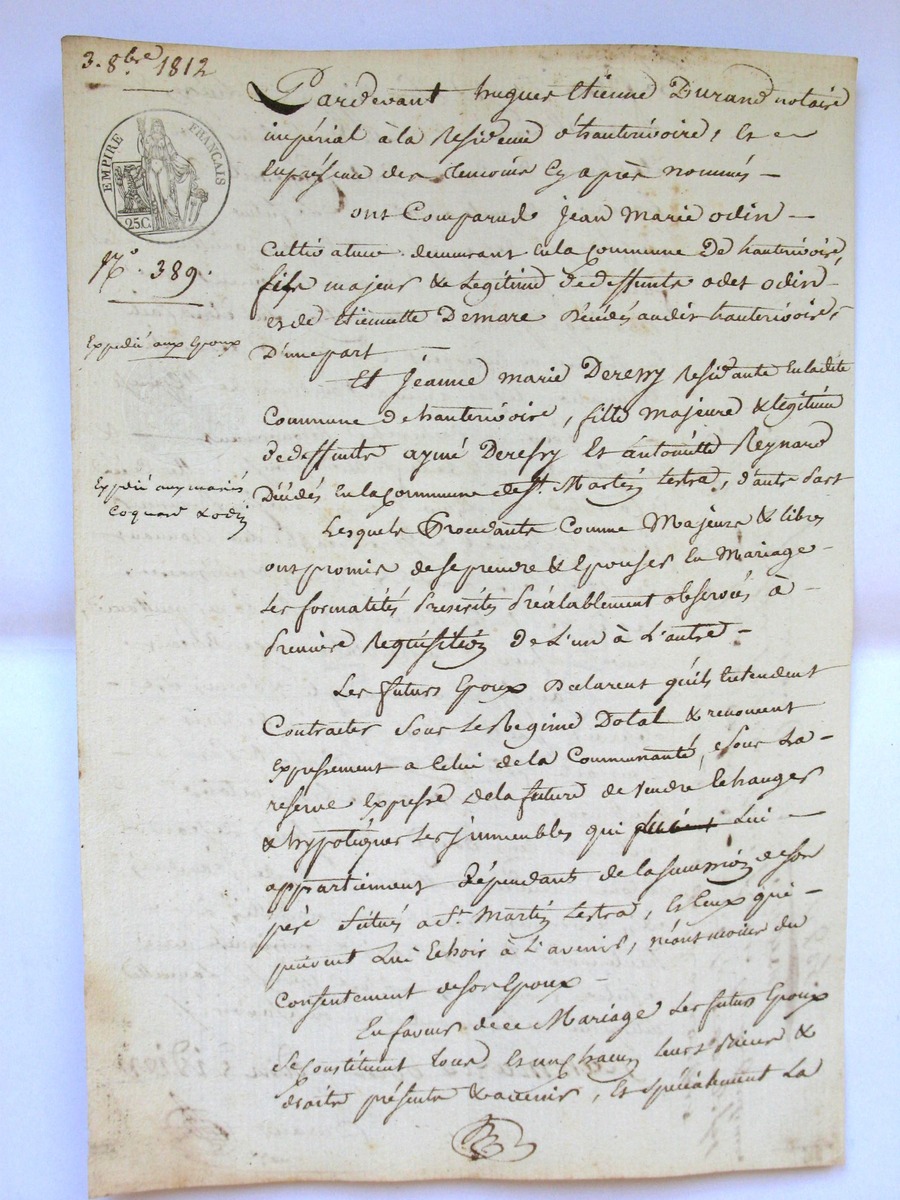 3. 8.bre 1812
EMPIRE FRANÇAIS
25 C.
N.° 389.
Expedié aux Epoux
Expedié aux mariés
Coquard & odin
Pardevant hugues Etienne Durand notaire
impérial à la residence d'hauterivoire, Et en
la présence des temoins Cy après nommés —
ont Comparud Jean Marie odin —
Cultivateur demeurant en la Commune De hauterivoire,
fils majeur & Legitime de deffunts odet odin
et de Etiennette Demare Décédés audit hauterivoire,
D'une part —
Et Jeanne marie Deressy residante en ladite
Commune de hauterivoire, fille majeure & legitime
de deffunts aymé Deressy Et antoinette Reynard
Décédés En la Commune de St. Martin Lestra, d'autre Part
Lesquels Procedants Comme Majeurs & libres
ont promis de se prendre & Epouser En Mariage —
Les formalités Prescrites Préalablement observées à —
Premiere Requisition De L'un à L'autre —
Les futurs Epoux Déclarent qu'ils Entendent
Contracter Sous Le Regime Dotal & renoncent
Expressement a Celui de la Communauté, & Sous La —
reserve Expresse de la future de Vendre Echanger
& hypotéquer Les immeubles qui Lui —
appartiennent Dépendants de la Succession de Son
père Situés a St. Martin Lestra, Et Ceux qui —
peuvent Lui Echoir à L'avenir, néantmoins du
Consentement de Son Epoux —
En faveur de ce Mariage Les futurs Epoux
Se Constituent tous Et un chacun Leurs Biens &
Droits présents & avenir, Et spécialement La